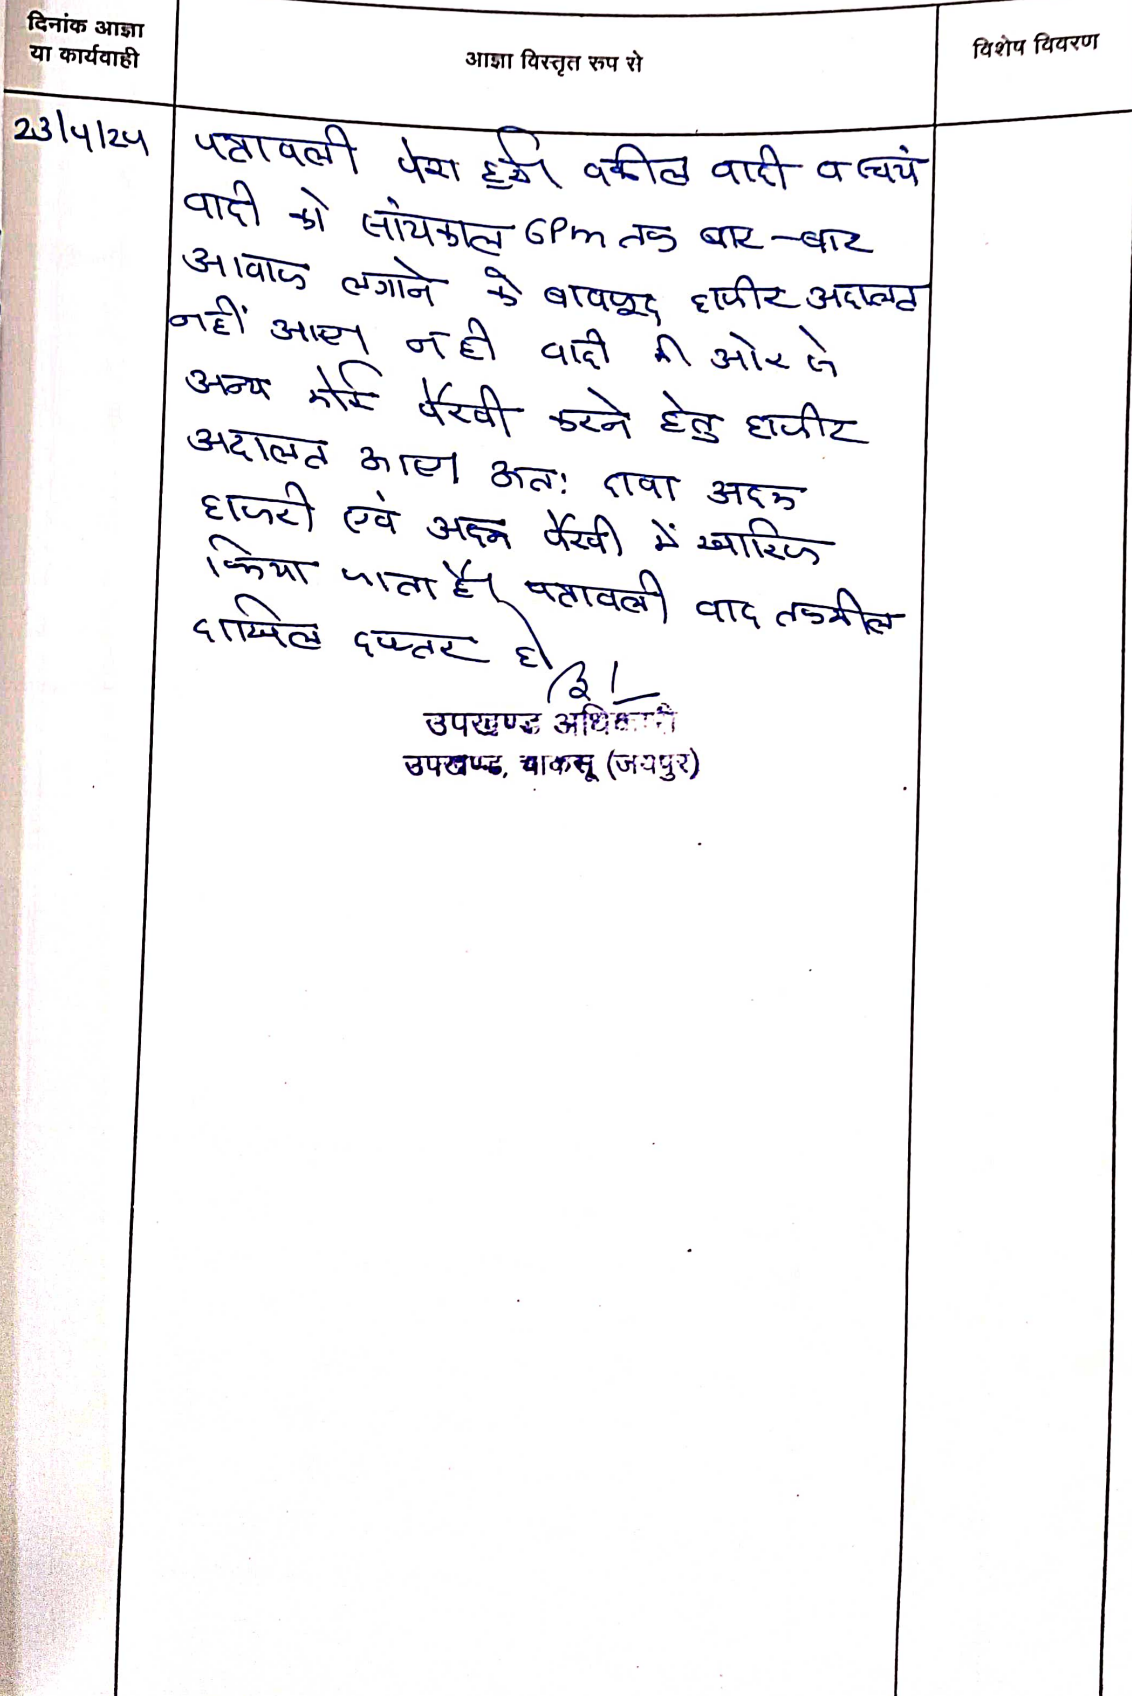 दिनांक आज्ञा
या कार्यवाही
आज्ञा विस्तृत रुप रो
विशेष विवरण
23/4/24
पत्रावली पेश हुई। वकील वादी व स्वयं
वादी को सांयकाल 6Pm तक बार-बार
आवाज लगाने के बावजूद हाजीर अदालत
नहीं आए। न ही वादी की ओर से
अन्य कोई पैरवी करने हेतु हाजीर
अदालत आए। अतः दावा अदम
हाजरी एवं अदम पैरवी में खारिज
किया जाता है। पत्रावली वाद तकमील
दाखिल दफ्तर हो
उपखण्ड अधिकारी
उपखण्ड, चाकसू (जयपुर)